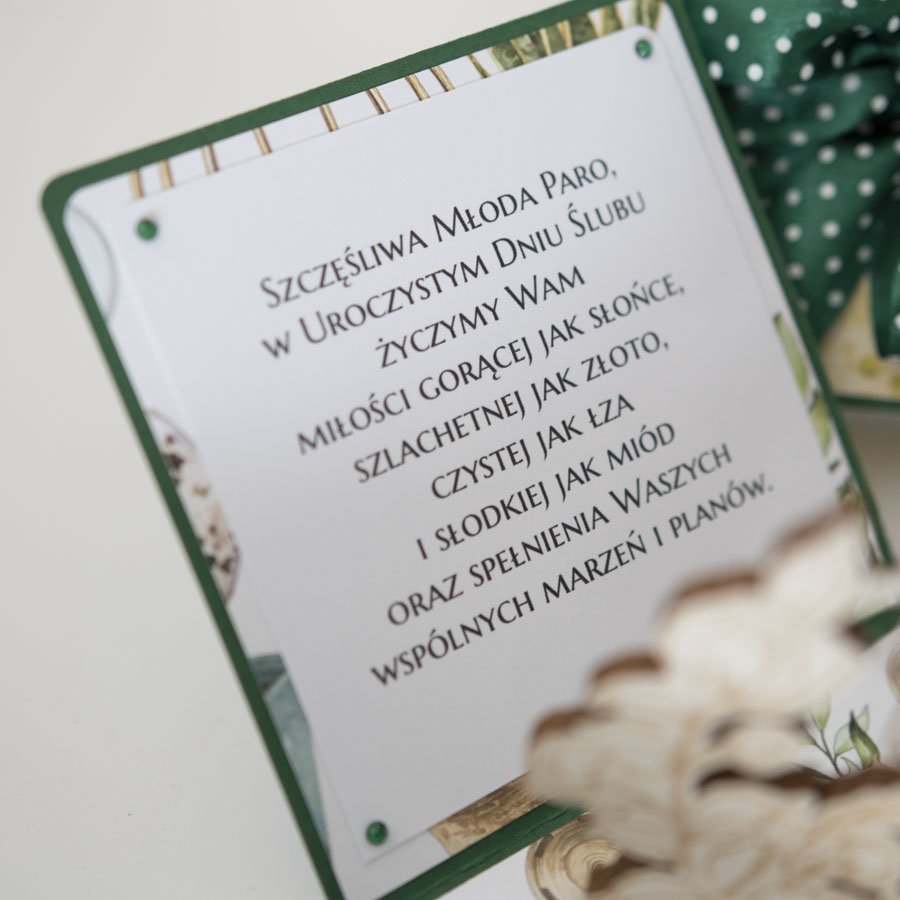 Szczęśliwa Młoda Paro,
w Uroczystym Dniu Ślubu
życzymy Wam
miłości gorącej jak słońce,
szlachetnej jak złoto,
czystej jak łza
i słodkiej jak miód
oraz spełnienia Waszych
wspólnych marzeń i planów.